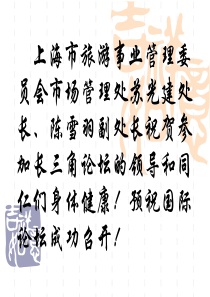 上海市旅游事业管理委
员会市场管理处苏光建处
长、陈雪羽副处长祝贺参
加长三角论坛的领导和同
仁们身体健康！预祝国际
论坛成功召开！